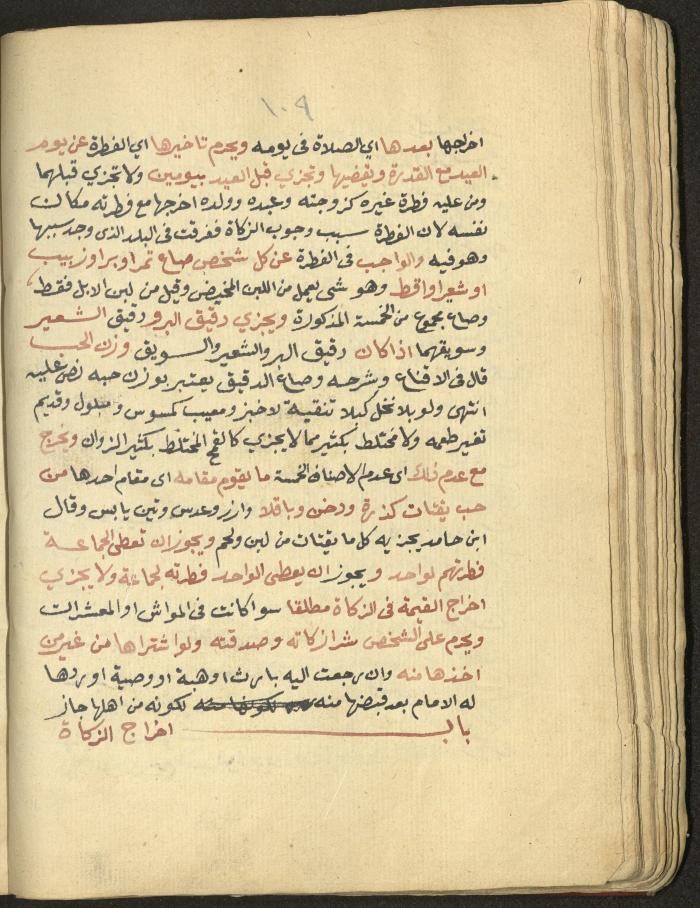 ١٠٩
اخراجها بعدها اي الصلاة فى يومه ويحرم تاخيرها اي الفطرة عن يوم
العيد مع القدرة ويقضيها وتجزي قبل العيد بيومين ولا تجزي قبلهما
ومن عليه فطرة غيره كزوجته وعبده وولده اخرجها مع فطرته مكان
نفسه لان الفطرة سبب وجوب الزكاة ففرقت فى البلد الذى وجد سببها
وهو فيه والواجب فى الفطرة عن كل شخص صاع تمر او بر او زبيب
او شعير او اقط وهو شى يعمل من اللبن المخيض وقيل من لبن الابل فقط
وصاع مجموع من الخمسة المذكورة ويجزي دقيق البر ودقيق الشعير
وسويقهما اذا كان دقيق البر والشعير والسويق وزن الحب
قال فى الاقناع وشرحه وصاع الدقيق يعتبر بوزن حبه نص عليه
انتهى ولو بلا نخل كبلا تنقية لا خبز ومعيب كمسوس ومبلول وقديم
تغير طعمه ولا مختلط بكثير مما لا يجزي كالقمح المختلط بكثير الزوان ويخرج
مع عدم ذلك اى عدم الاصناف الخمسة ما يقوم مقامه اى مقام احدها من
حب يقتات كذرة ودخن وباقلا وارز وعدس وتين يابس وقال
ابن حامد يجزيه كل ما يقتات من لبن ولحم ويجوز ان تعطى الجماعة
فطرتهم لواحد ويجوز ان يعطى الواحد فطرته لجماعة ولا يجزي
اخراج القيمة فى الزكاة مطلقا سوا كانت فى المواش او المعشرات
ويحرم على الشخص شرا زكاته وصدقته ولو اشتراها من غير من
اخذها منه وان رجعت اليه بارث او هبة او وصية او ردها
له الامام بعد قبضها منه لكونه من اهلها جاز
باب اخراج الزكاة